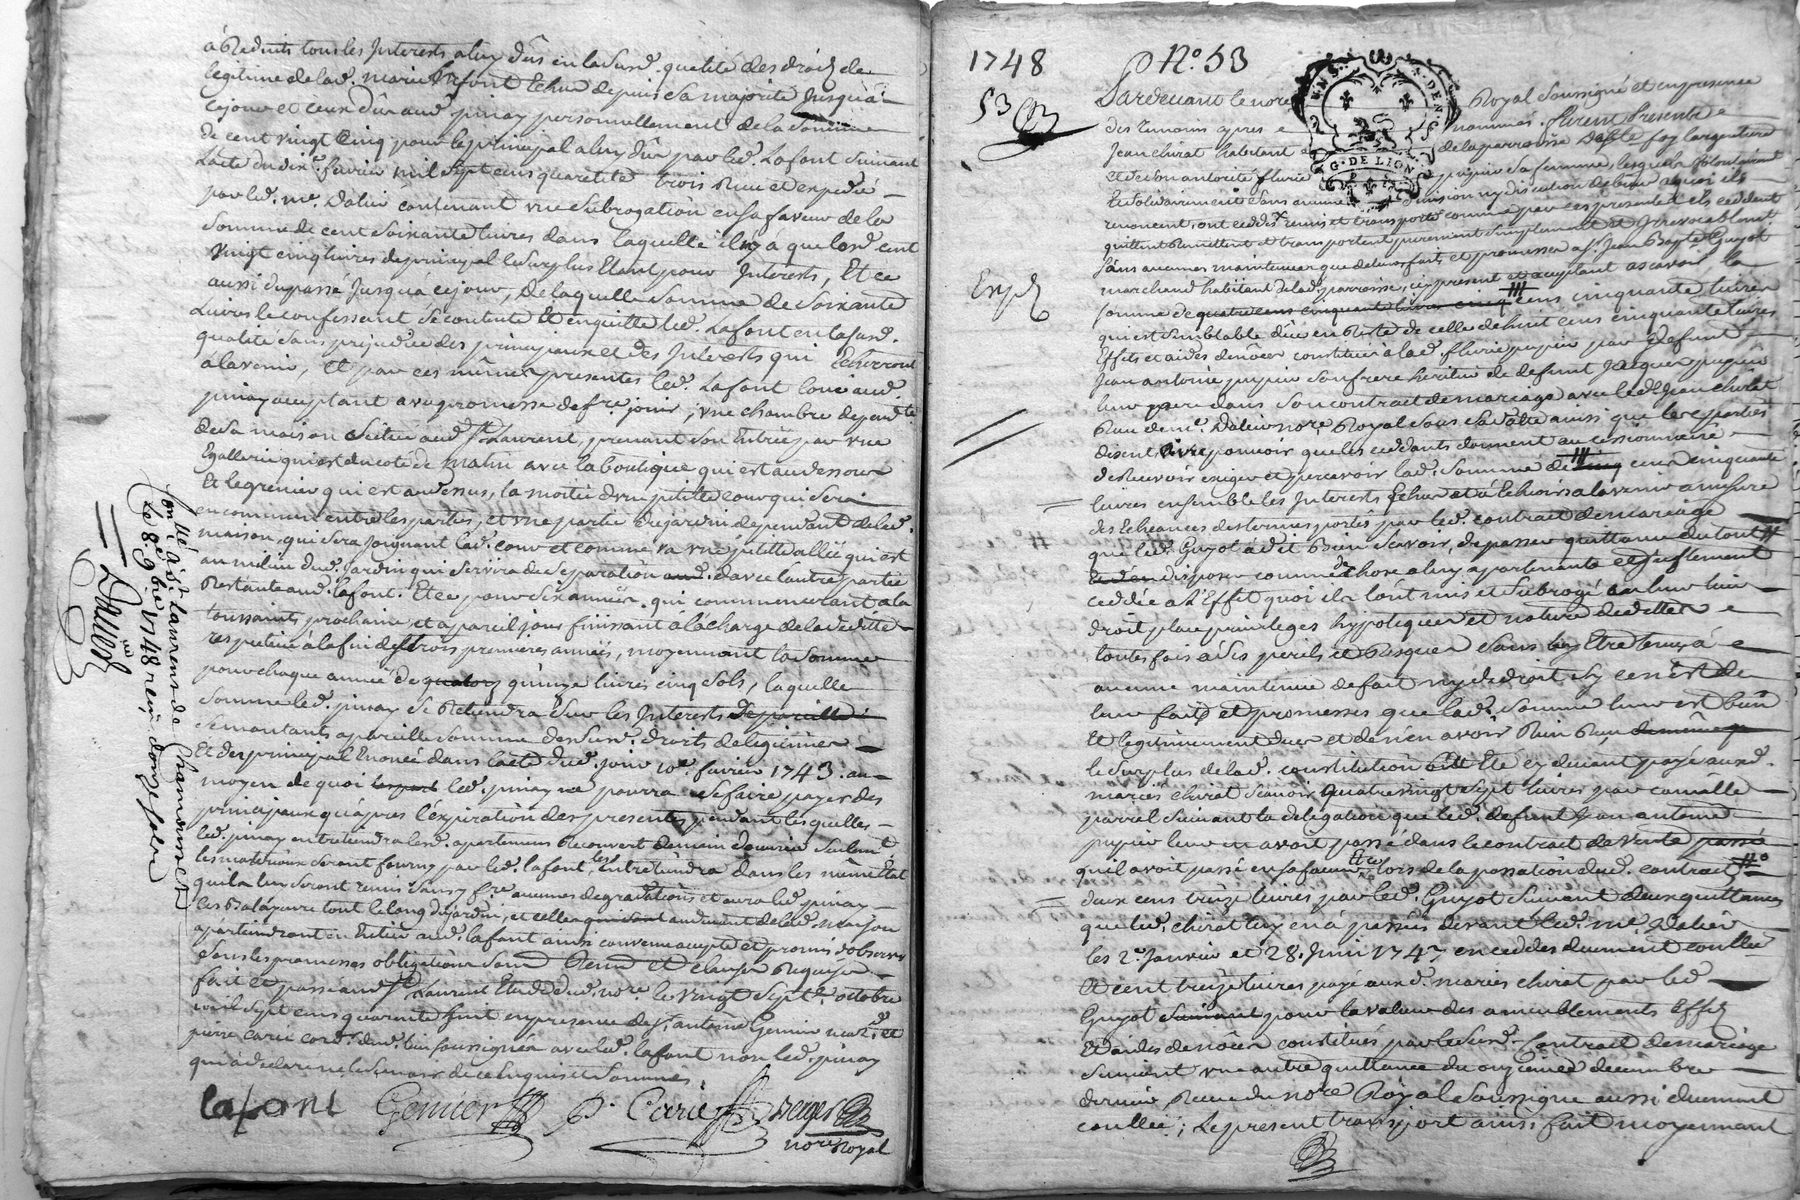 à Reduits tous les Interests a luy dûs en la susd. qualité des droits de
legitime de lad. marie Lafont Echue depuis sa majorité jusqu'à
ce jour et ceux dûs aud. pinay personnellement de la somme
de cent vingt cinq pour le principal a luy dûe par led. Lafont suivant
L'acte du dix. fevrier mil sept cens quarente trois Receu et expedié
par led. me. Dalier contenant une subrogation en sa faveur de la
somme de cent soixante livres dans laquelle il n'y à que lesd. cent
vingt cinq livres de principal le surplus Etant pour Interests, Et ce
aussi du passé Jusqu'a ce jour, de laquelle somme de soixante
Livres le confessent se contente Et en quitte led. Lafont en la susd.
qualité sans prejudice des principaux et des Interests qui Echerront
a l'avenir, Et par ces mêmes presentes led. Lafont loue aud.
pinay acceptant avec promesse de fre. jouir, une chambre dependte.
de sa maison scituée aud. St. Laurent, prenant son Entrée par une
Gallerie qui est du coté de matin avec la boutique qui est au dessous
Et le grenier qui est au dessus, la moitié d'une petite cour qui sera
en commun entre les parties, et une partie du jardin dependant de lad.
maison, qui sera joignant lad. cour et comme va une petite allée qui est
au milieu dud. jardin qui servira de separation d'avec l'autre partie
Restante aud. Lafont. Et ce pour six années qui commenceront a la
toussaints prochaine et a pareil jour finissant a la charge de la deditte
respective à la fin des trois premieres années, moyennant la somme
pour chaque année de quatorz quinze livres cinq sols, laquelle
somme led. pinay se Retiendra sur les Interests de pareille
Se montants a pareille somme des susd. droits de legitime
Et des principal Enoncé dans l'acte dud. jour 10e. fevrier 1743. au
moyen de quoi led. pinay ne pourra se faire payer des
principaux qu'apres l'expiration des presentes pendant lesquelles
led. pinay entretiendra lesd. apartemens Recouvert de main d'ouvrier seulemt.
les materiaux seront fournis par led. Lafont, les Entretiendra dans le même Etat
qu'il luy seront remis sans y fre. aucunes degradations et aura led. pinay
les Balayures tout le long du jardin, et celles au devant de lad. maison
apartiendront en Entier aud. Lafont ainsi convenu accepté et promis d'observer
sous les promesses obligations soumd. Renond. et clauses Requises
fait et passé aud. St. Laurent Etude dud. nore. le vingt sept. octobre
mil sept cens quarente huit en presence de sr. antoine Genier mard. et
pierre Carié cord. dud. lieu soussignés avec led. Lafont non led. pinay
qui à declare ne le scavoir de ce Enquis et sommé
Lafont Genier P. Carié Berger
nore Royal
Conllé a St. Laurens de Chamousset
le 8 9bre 1748 recu douze sols
Dalier
1748
No. 53
53
Expd
ENS. A. DEN.
G. DE LION
Pardevant le nore. Royal soussigné et en presence
des temoins cy apres nommés. furent presents
Jean chirat habitant de la parroisse D'affoz Largentiere
et de son autorité flurie pupier sa femme, lesquels solidairement
Et solidairement sans division ny discution de biens a quoi ils
renoncent, ont ceddé, remis et transporté comme par ces presentes ils ceddent
quittent Remettent et transportent purement simplement et Irrevocablemt
sans aucunes maintenues que de leurs faits et promesses a sr. Jean Bapte. Guyot
marchand habitant de lad. parroisse, icy present et acceptant ascavoir la
somme de quatre cens cinquante livres cinq cens cinquante livres
qui est semblable dûe en Reste de celle de huit cens cinquante livres
Effets et aides de nôces constitués à lad. flurie pupier par defunt
Jean antoine pupier son frere heritier de defunt Jacques pupier
leur pere dans son contract de mariage avec led. Jean chirat
Receu de me. Dalier nore. Royal sous sa datte ainsi que les parties
disent. Avec pouvoir que les ceddants donnent au cessionnaire
de Recevoir exiger et percevoir lad. somme de cinq cens cinquante
livres ensemble les Interests Echus et à Echoir a l'avenir a mesure
des Echeances des termes portés par led. contrat de mariage
que led. Guyot à dit Bien scavoir, de passer quittance du tout
et d'en disposer comme de chose a luy apartenante et seulement
ceddée a l'Effet quoi ils l'ont mis et subrogé en leur lieu
droit place privileges hypoteques et nature de dettes
toutes fois à ses perils et Risques sans luy Etre tenus à
aucune maintenue de fait ny de droit sy ce n'est de
leur fait et promesses que lad. somme leur est bien
Et legitimement dues et de n'en avoir Rien Receu
le surplus de lad. constitution Etté cy devant payé auxd.
mariés chirat scavoir quatre vingt sept livres par camille
parral suivant la delegation que led. defunt Jean antoine
pupier leur en avoit passé dans le contrat de vente passé
qu'il avoit passé en sa faveur lors de la passation dud. contrat
deux cens treize livres par led. Guyot suivant deux quittances
que led. chirat luy en à passées devant led. me. Dalier
les 2e. Janvier et 28. Juin 1747 en ceddes duement contlée
Et cent treize livres payé auxd. mariés chirat par led
Guyot suivant pour la valeur des ameublements Effets
Et aides de nôces constitués par le susd. Contrat de mariage
suivant une autre quittance du onzieme decembre
dernier Receu du nore. Royal soussigné aussi duement
conllée; Le present transport ainsi fait moyennant